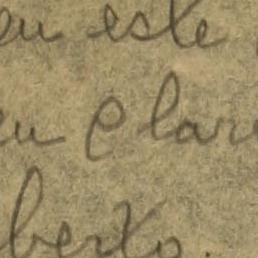 eu este
eu Clare
berto.